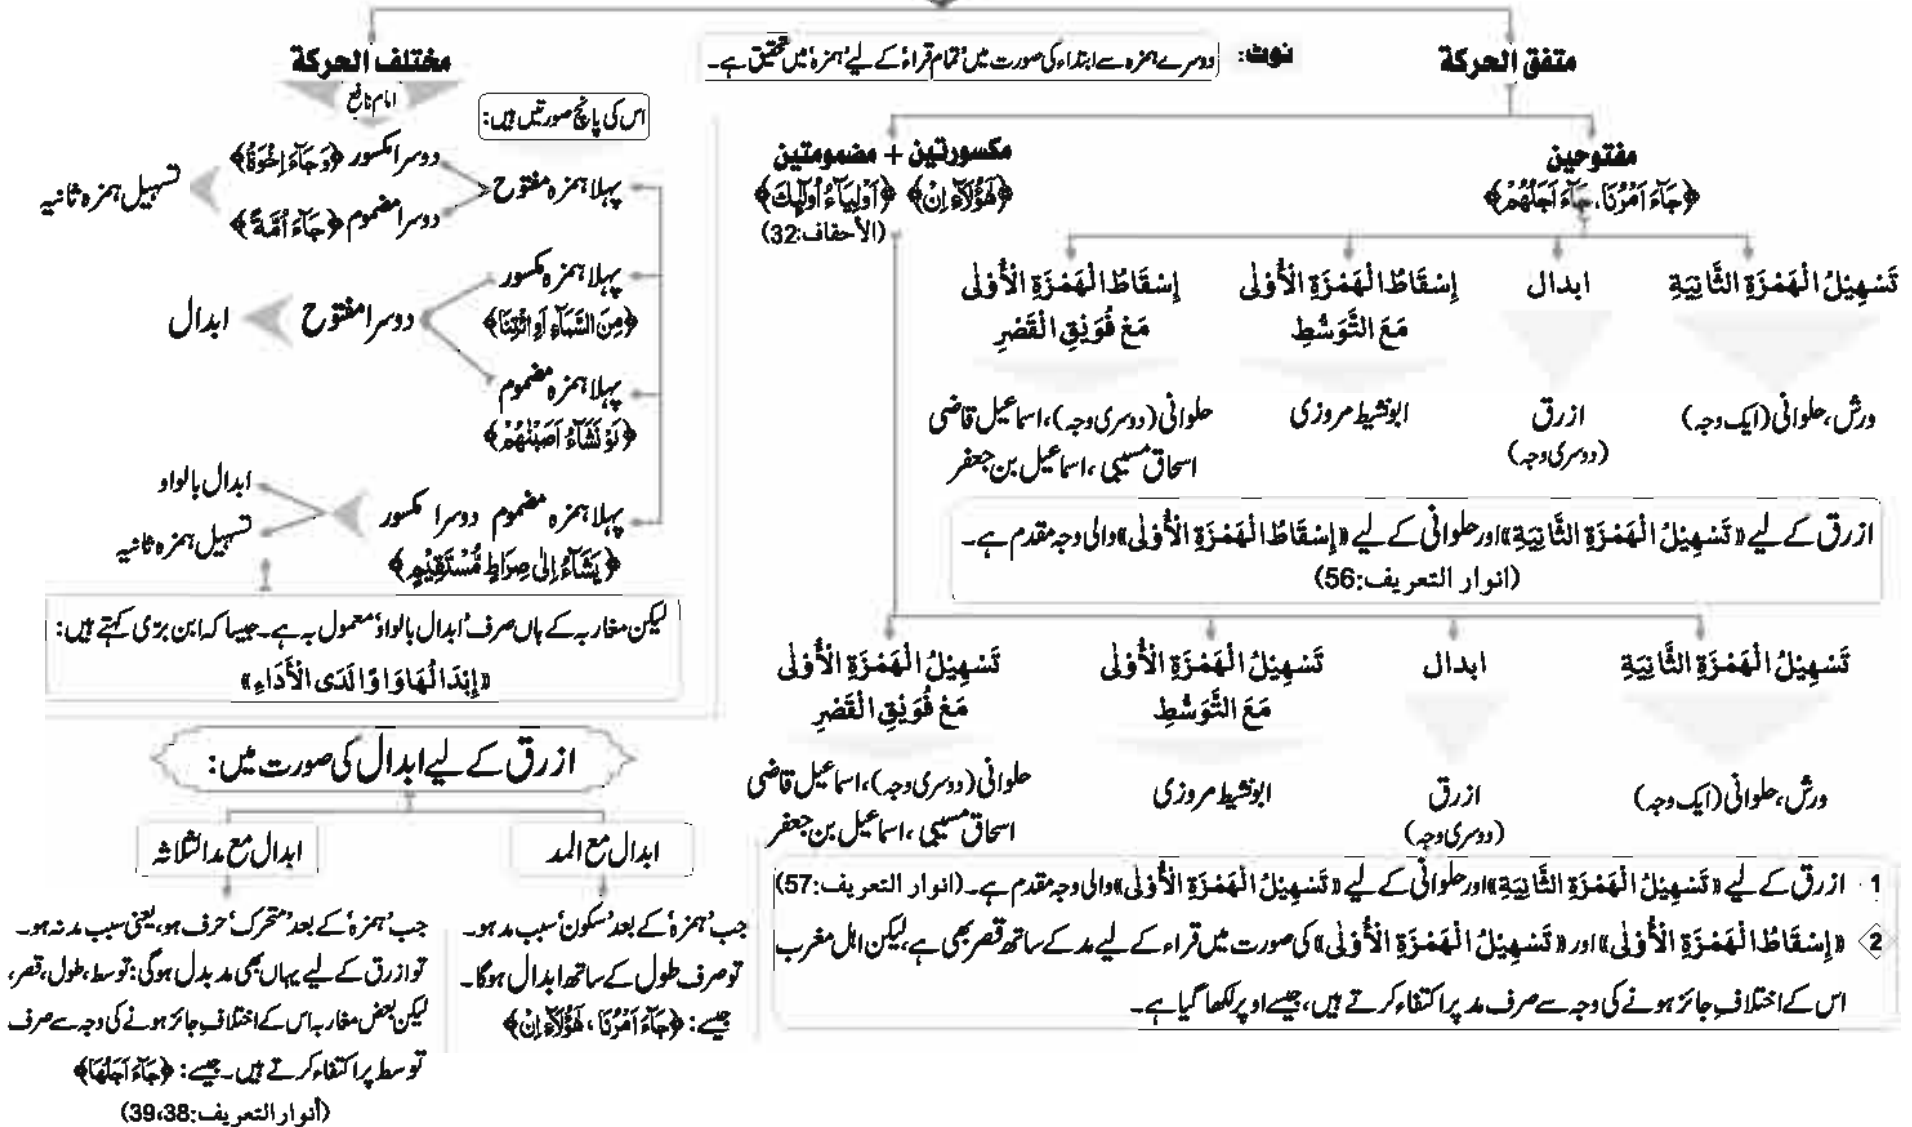 متفق الحركة
نوٹ: دوسرے ہمزہ سے ابتداء کی صورت میں تمام قراء کے لیے 'ہمزہ' میں تحقیق ہے۔
مفتوحين
﴿جَآءَ اَمْرُنَا، جَآءَ اَجَلُهُمْ﴾
مكسورتين + مضمومتين
﴿هٰٓؤُلَآءِ اِنْ﴾ ﴿اَوْلِيَآءُ اُولٰٓئِكَ﴾
(الأحقاف:32)
تَسْهِيْلُ الْهَمْزَةِ الثَّانِيَةِ
ورش، حلوانی (ایک وجہ)
ابدال
ازرق
(دوسری وجہ)
إِسْقَاطُ الْهَمْزَةِ الْأُوْلٰى
مَعَ التَّوَسُّطِ
ابونشیط مروزی
إِسْقَاطُ الْهَمْزَةِ الْأُوْلٰى
مَعْ فُوَيْقِ الْقَصْرِ
حلوانی (دوسری وجہ)، اسماعیل قاضی
اسحاق مسیبی، اسماعیل بن جعفر
ازرق کے لیے «تَسْهِيْلُ الْهَمْزَةِ الثَّانِيَةِ» اور حلوانی کے لیے «إِسْقَاطُ الْهَمْزَةِ الْأُوْلٰى» والی وجہ مقدم ہے۔
(انوار التعریف:56)
تَسْهِيْلُ الْهَمْزَةِ الثَّانِيَةِ
ورش، حلوانی (ایک وجہ)
ابدال
ازرق
(دوسری وجہ)
تَسْهِيْلُ الْهَمْزَةِ الْأُوْلٰى
مَعَ التَّوَسُّطِ
ابونشیط مروزی
تَسْهِيْلُ الْهَمْزَةِ الْأُوْلٰى
مَعْ فُوَيْقِ الْقَصْرِ
حلوانی (دوسری وجہ)، اسماعیل قاضی
اسحاق مسیبی، اسماعیل بن جعفر
1 ازرق کے لیے «تَسْهِيْلُ الْهَمْزَةِ الثَّانِيَةِ» اور حلوانی کے لیے «تَسْهِيْلُ الْهَمْزَةِ الْأُوْلٰى» والی وجہ مقدم ہے۔ (انوار التعریف:57)
2 «إِسْقَاطُ الْهَمْزَةِ الْأُوْلٰى» اور «تَسْهِيْلُ الْهَمْزَةِ الْأُوْلٰى» کی صورت میں قراء کے لیے مد کے ساتھ قصر بھی ہے، لیکن اہل مغرب
اس کے اختلافِ جائز ہونے کی وجہ سے صرف مد پر اکتفاء کرتے ہیں، جیسے اوپر لکھا گیا ہے۔
مختلف الحركة
امام نافع
اس کی پانچ صورتیں ہیں:
پہلا ہمزہ مفتوح
دوسرا مکسور ﴿وَجَآءَ اِخْوَةُ﴾
دوسرا مضموم ﴿جَآءَ اُمَّةً﴾
تسہیل ہمزہ ثانیہ
پہلا ہمزہ مکسور
﴿مِنَ السَّمَآءِ اَوِ ائْتِنَا﴾
دوسرا مفتوح
ابدال
پہلا ہمزہ مضموم
﴿لَوْ نَشَآءُ اَصَبْنٰهُمْ﴾
پہلا ہمزہ مضموم دوسرا مکسور
﴿يَشَآءُ اِلٰى صِرَاطٍ مُّسْتَقِيْمٍ﴾
ابدال بالواو
تسہیل ہمزہ ثانیہ
لیکن مغاربہ کے ہاں صرف 'ابدال بالواو' معمول بہ ہے۔ جیسا کہ ابن بَرّی کہتے ہیں:
«إِبْدَالُهَا وَاوًا لَدَى الْأَدَاءِ»
ازرق کے لیے ابدال کی صورت میں:
ابدال مع المد
جب 'ہمزہ' کے بعد 'سکون' سبب مد ہو۔
تو صرف طول کے ساتھ ابدال ہوگا۔
جیسے: ﴿جَآءَ اَمْرُنَا، هٰٓؤُلَآءِ اِنْ﴾
ابدال مع مد الثلاثہ
جب 'ہمزہ' کے بعد 'متحرک' حرف ہو، یعنی سبب مد نہ ہو۔
تو ازرق کے لیے یہاں بھی مد بدل ہوگی: توسط، طول، قصر،
لیکن بعض مغاربہ اس کے اختلافِ جائز ہونے کی وجہ سے صرف
توسط پر اکتفاء کرتے ہیں۔ جیسے: ﴿جَآءَ اَجَلُهَا﴾
(أنوار التعريف:38،39)